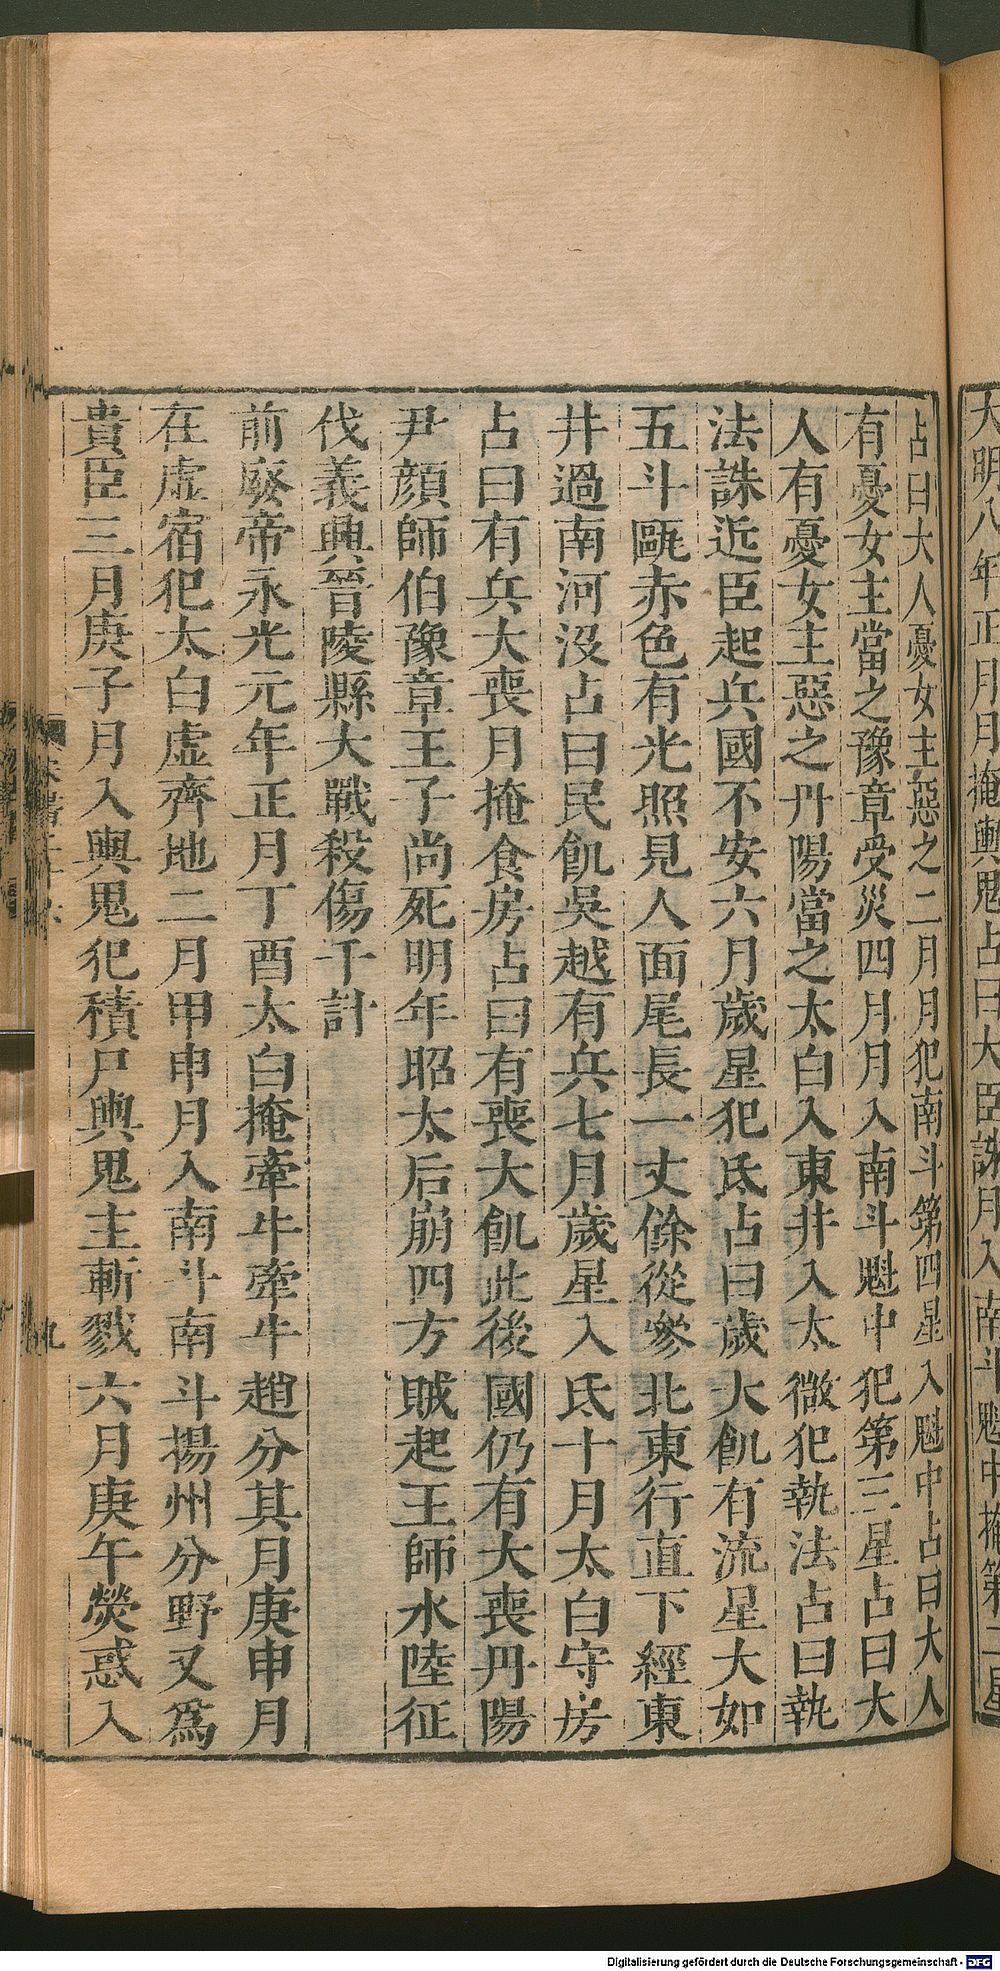 大明八年正月月掩輿鬼占曰大臣誅月入南斗魁中掩第二星
占曰大人憂女主惡之二月月犯南斗第四星入魁中占曰大人
有憂女主當之豫章受災四月月入南斗魁中犯第三星占曰大
人有憂女主惡之丹陽當之太白入東井入太微犯執法占曰執
法誅近臣起兵國不安六月歲星犯氐占曰歲大飢有流星大如
五斗甌赤色有光照見人面尾長一丈餘從參北東行直下經東
井過南河沒占曰民飢吳越有兵七月歲星入氐十月太白守房
占曰有兵大喪月掩食房占曰有喪大飢此後國仍有大喪丹陽
尹顏師伯豫章王子尚死明年昭太后崩四方賊起王師水陸征
伐義興晉陵縣大戰殺傷千計
前廢帝永光元年正月丁酉太白掩牽牛牽牛趙分其月庚申月
在虛宿犯太白虛齊地二月甲申月入南斗南斗揚州分野又爲
貴臣三月庚子月入輿鬼犯積尸輿鬼主斬戮六月庚午熒惑入
九
Digitalisierung gefördert durch die Deutsche Forschungsgemeinschaft - DFG